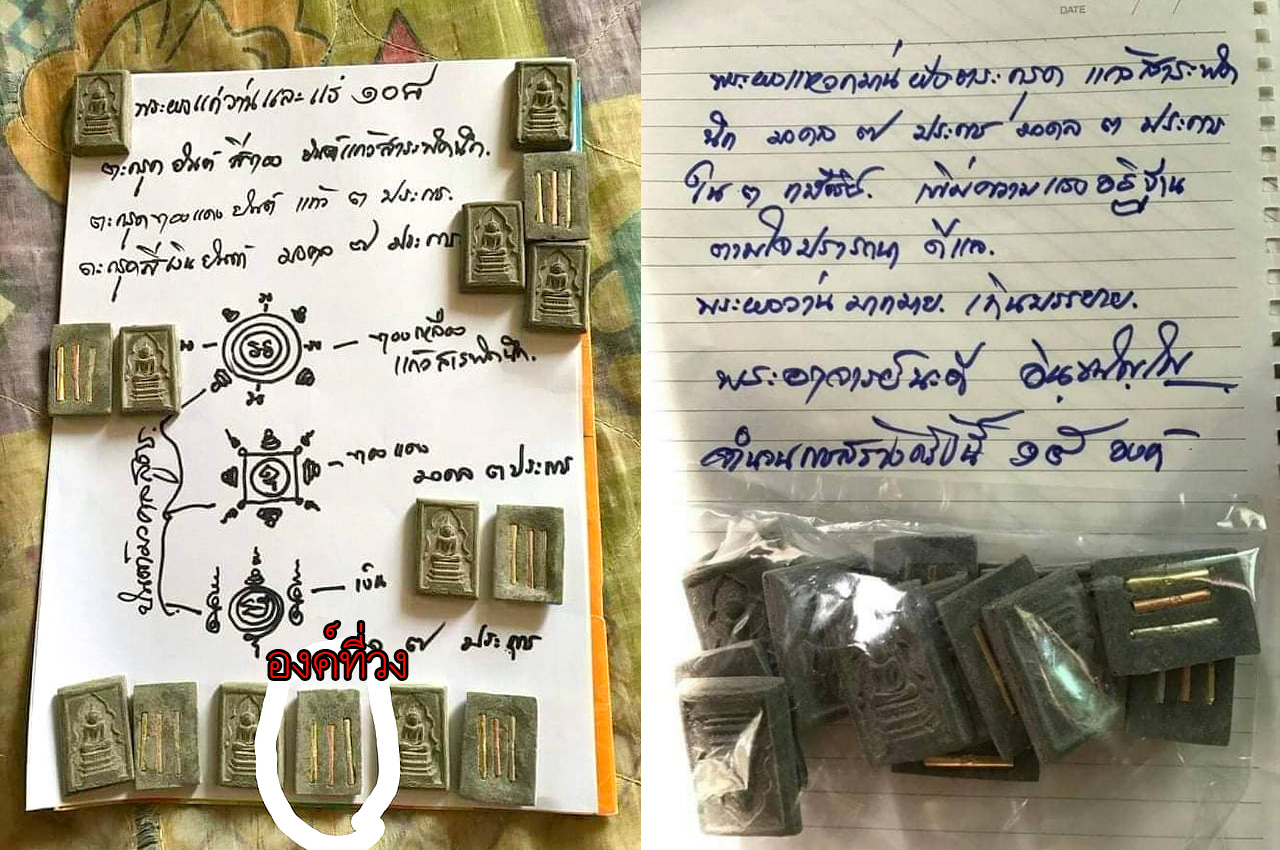 พระผงแก่ว่านและแร่ ๑๐๘
ตะกรุด ยันต์ สีทอง ยันต์แก้วสาระพัดนึก.
ตะกรุดทองแดง ยันต์ แก้ว ๓ ประการ.
ตะกรุดสีเงินยันต์ มงคล ๗ ประการ
ทองเหลือง
แก้วสารพัดนึก.
ทองแดง
มงคล ๓ ประการ
เงิน
๗ ประการ
องค์ที่วง
DATE
พระผง ว่าน ตะกรุด แก้วสาระพัด
นึก มงคล ๗ ประการ มงคล ๓ ประการ
ใน ๑ เพิ่มความแรงอธิฐาน
ตามใจปรารถนา ดีแล.
พระผงว่าน มากมาย. เกินบรรยาย.
พระอาจารย์
จำนวนการสร้าง องค์